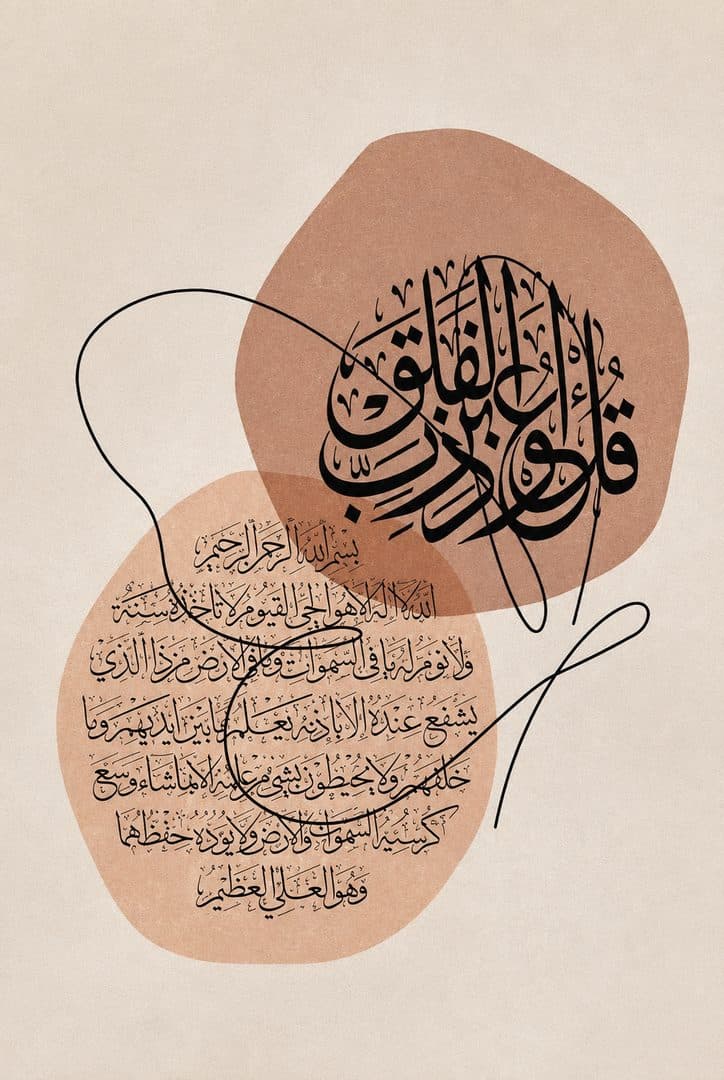 قُلْ أَعُوذُ بِرَبِّ الْفَلَقِ
بسم الله الرحمن الرحيم
الله لا اله الا هو الحي القيوم لا تاخذه سنة
ولا نوم له ما في السموات وما في الارض من ذا الذي
يشفع عنده الا باذنه يعلم ما بين ايديهم وما
خلفهم ولا يحيطون بشيء من علمه الا بما شاء وسع
كرسيه السموات والارض ولا يؤده حفظهما
وهو العلي العظيم